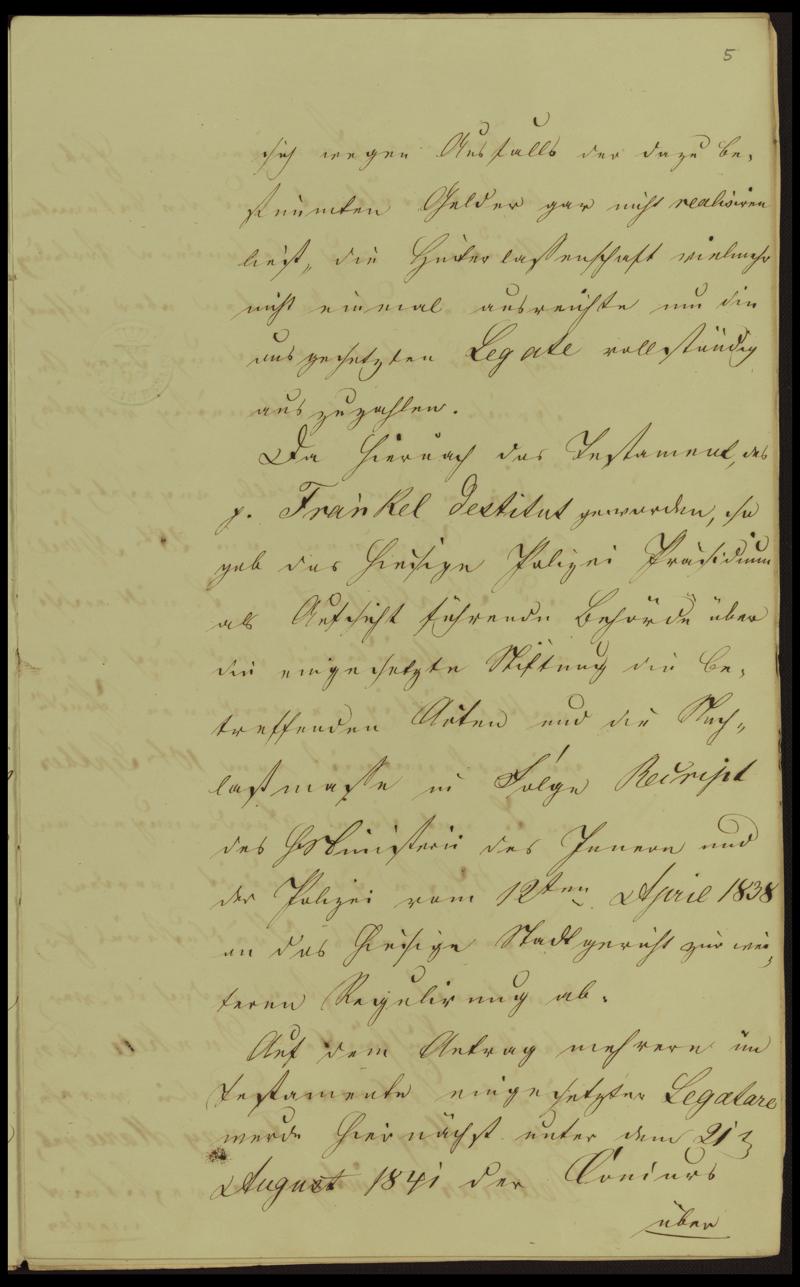 5
sich wegen Ausfalls der dazu be-
stimmten Gelder gar nicht realisiren
ließ, die Hinterlassenschaft vielmehr
nicht einmal ausreichte um die
ausgesetzten Legate vollständig
auszuzahlen.
Da hiernach das Testament, des
p. Fränkel destitut geworden, so
gab das hiesige Polizei Präsidium
als Aufsicht führende Behörde über
die eingesetzte Stiftung die be-
treffenden Acten und die Nach-
laßmasse in Folge Rescript
des Ministerii des Innern und
der Polizei vom 12ten April 1838
an das hiesige Stadtgericht zur wei-
teren Regulirung ab.
Auf dem Antrag mehrere im
Testamente eingesetzter Legatare
wurde hiernächst unter dem 21
August 1841 der Concurs
über